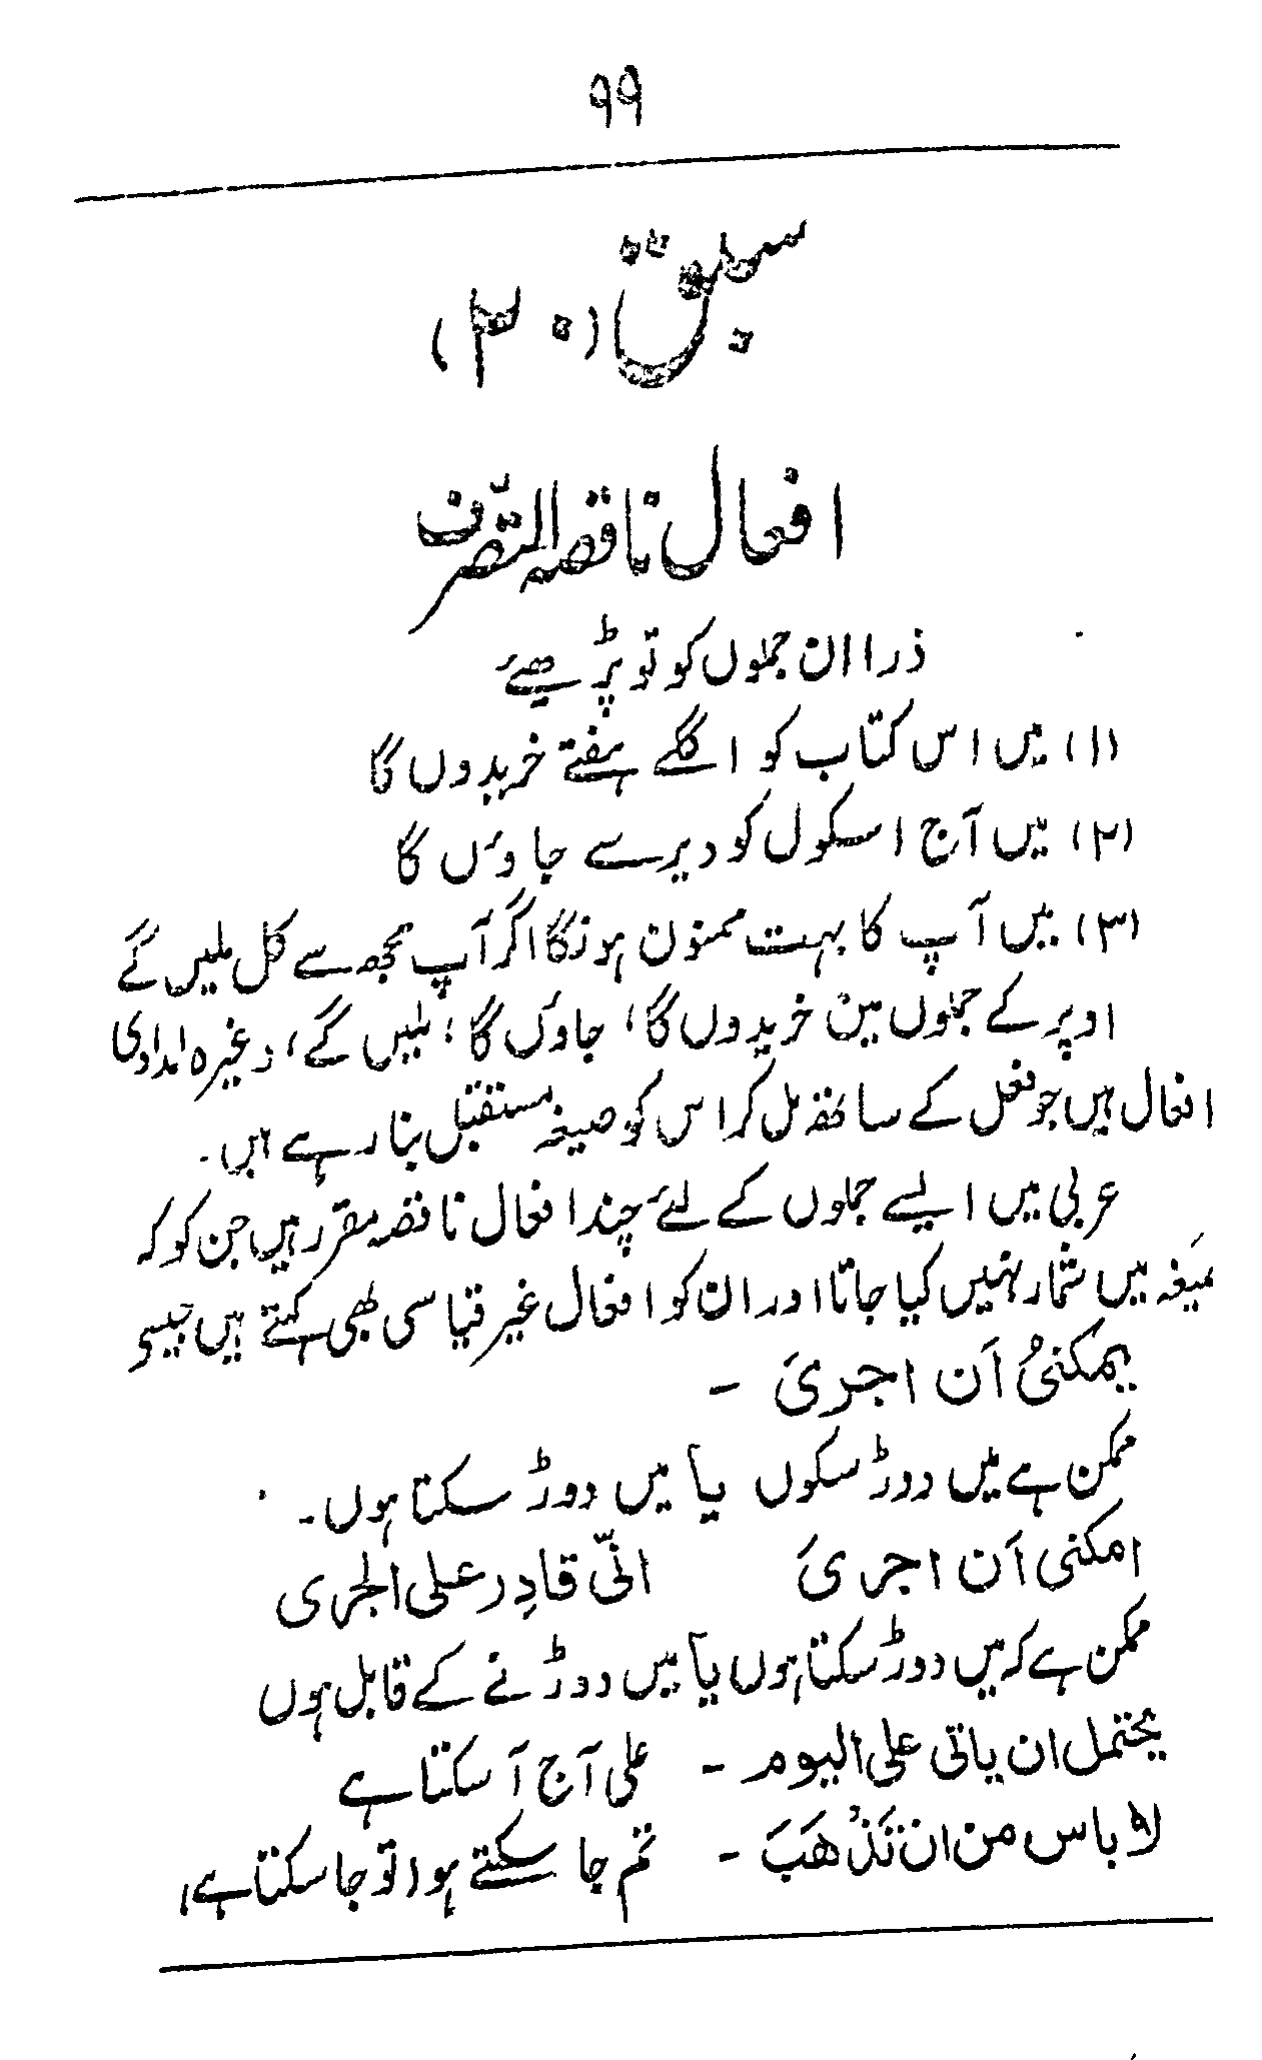 ۹۹
سبق (۲۰)
افعال ناقصہ التصرّف
ذرا ان جملوں کو تو پڑھیئے
(۱) میں اس کتاب کو اگلے ہفتے خریدوں گا
(۲) میں آج اسکول کو دیر سے جاوٴں گا
(۳) میں آپ کا بہت ممنون ہونگا اگر آپ مجھ سے کل ملیں گے
اوپر کے جملوں میں خریدوں گا، جاوٴں گا، ملیں گے، وغیرہ امدادی
افعال ہیں جو فعل کے ساتھ مل کر اس کو صیغہ مستقبل بنا رہے ہیں۔
عربی میں ایسے جملوں کے لئے چند افعال ناقصہ مقرر ہیں جن کو کہ
صَیغہ میں شمار نہیں کیا جاتا اور ان کو افعال غیر قیاسی بھی کہتے ہیں جیسے
یمکننیُ اَن اجریَ -
ممکن ہے میں دوڑ سکوں یا میں دوڑ سکتا ہوں۔
امکننی اَن اجریَ انّی قادِر علی الجری
ممکن ہے کہ میں دوڑ سکتا ہوں یا میں دوڑنے کے قابل ہوں
یحتمل ان یاتی علی الیوم - علی آج آ سکتا ہے
لا باس من ان تَذْھَبَ - تم جا سکتے ہو (تو جا سکتا ہے)